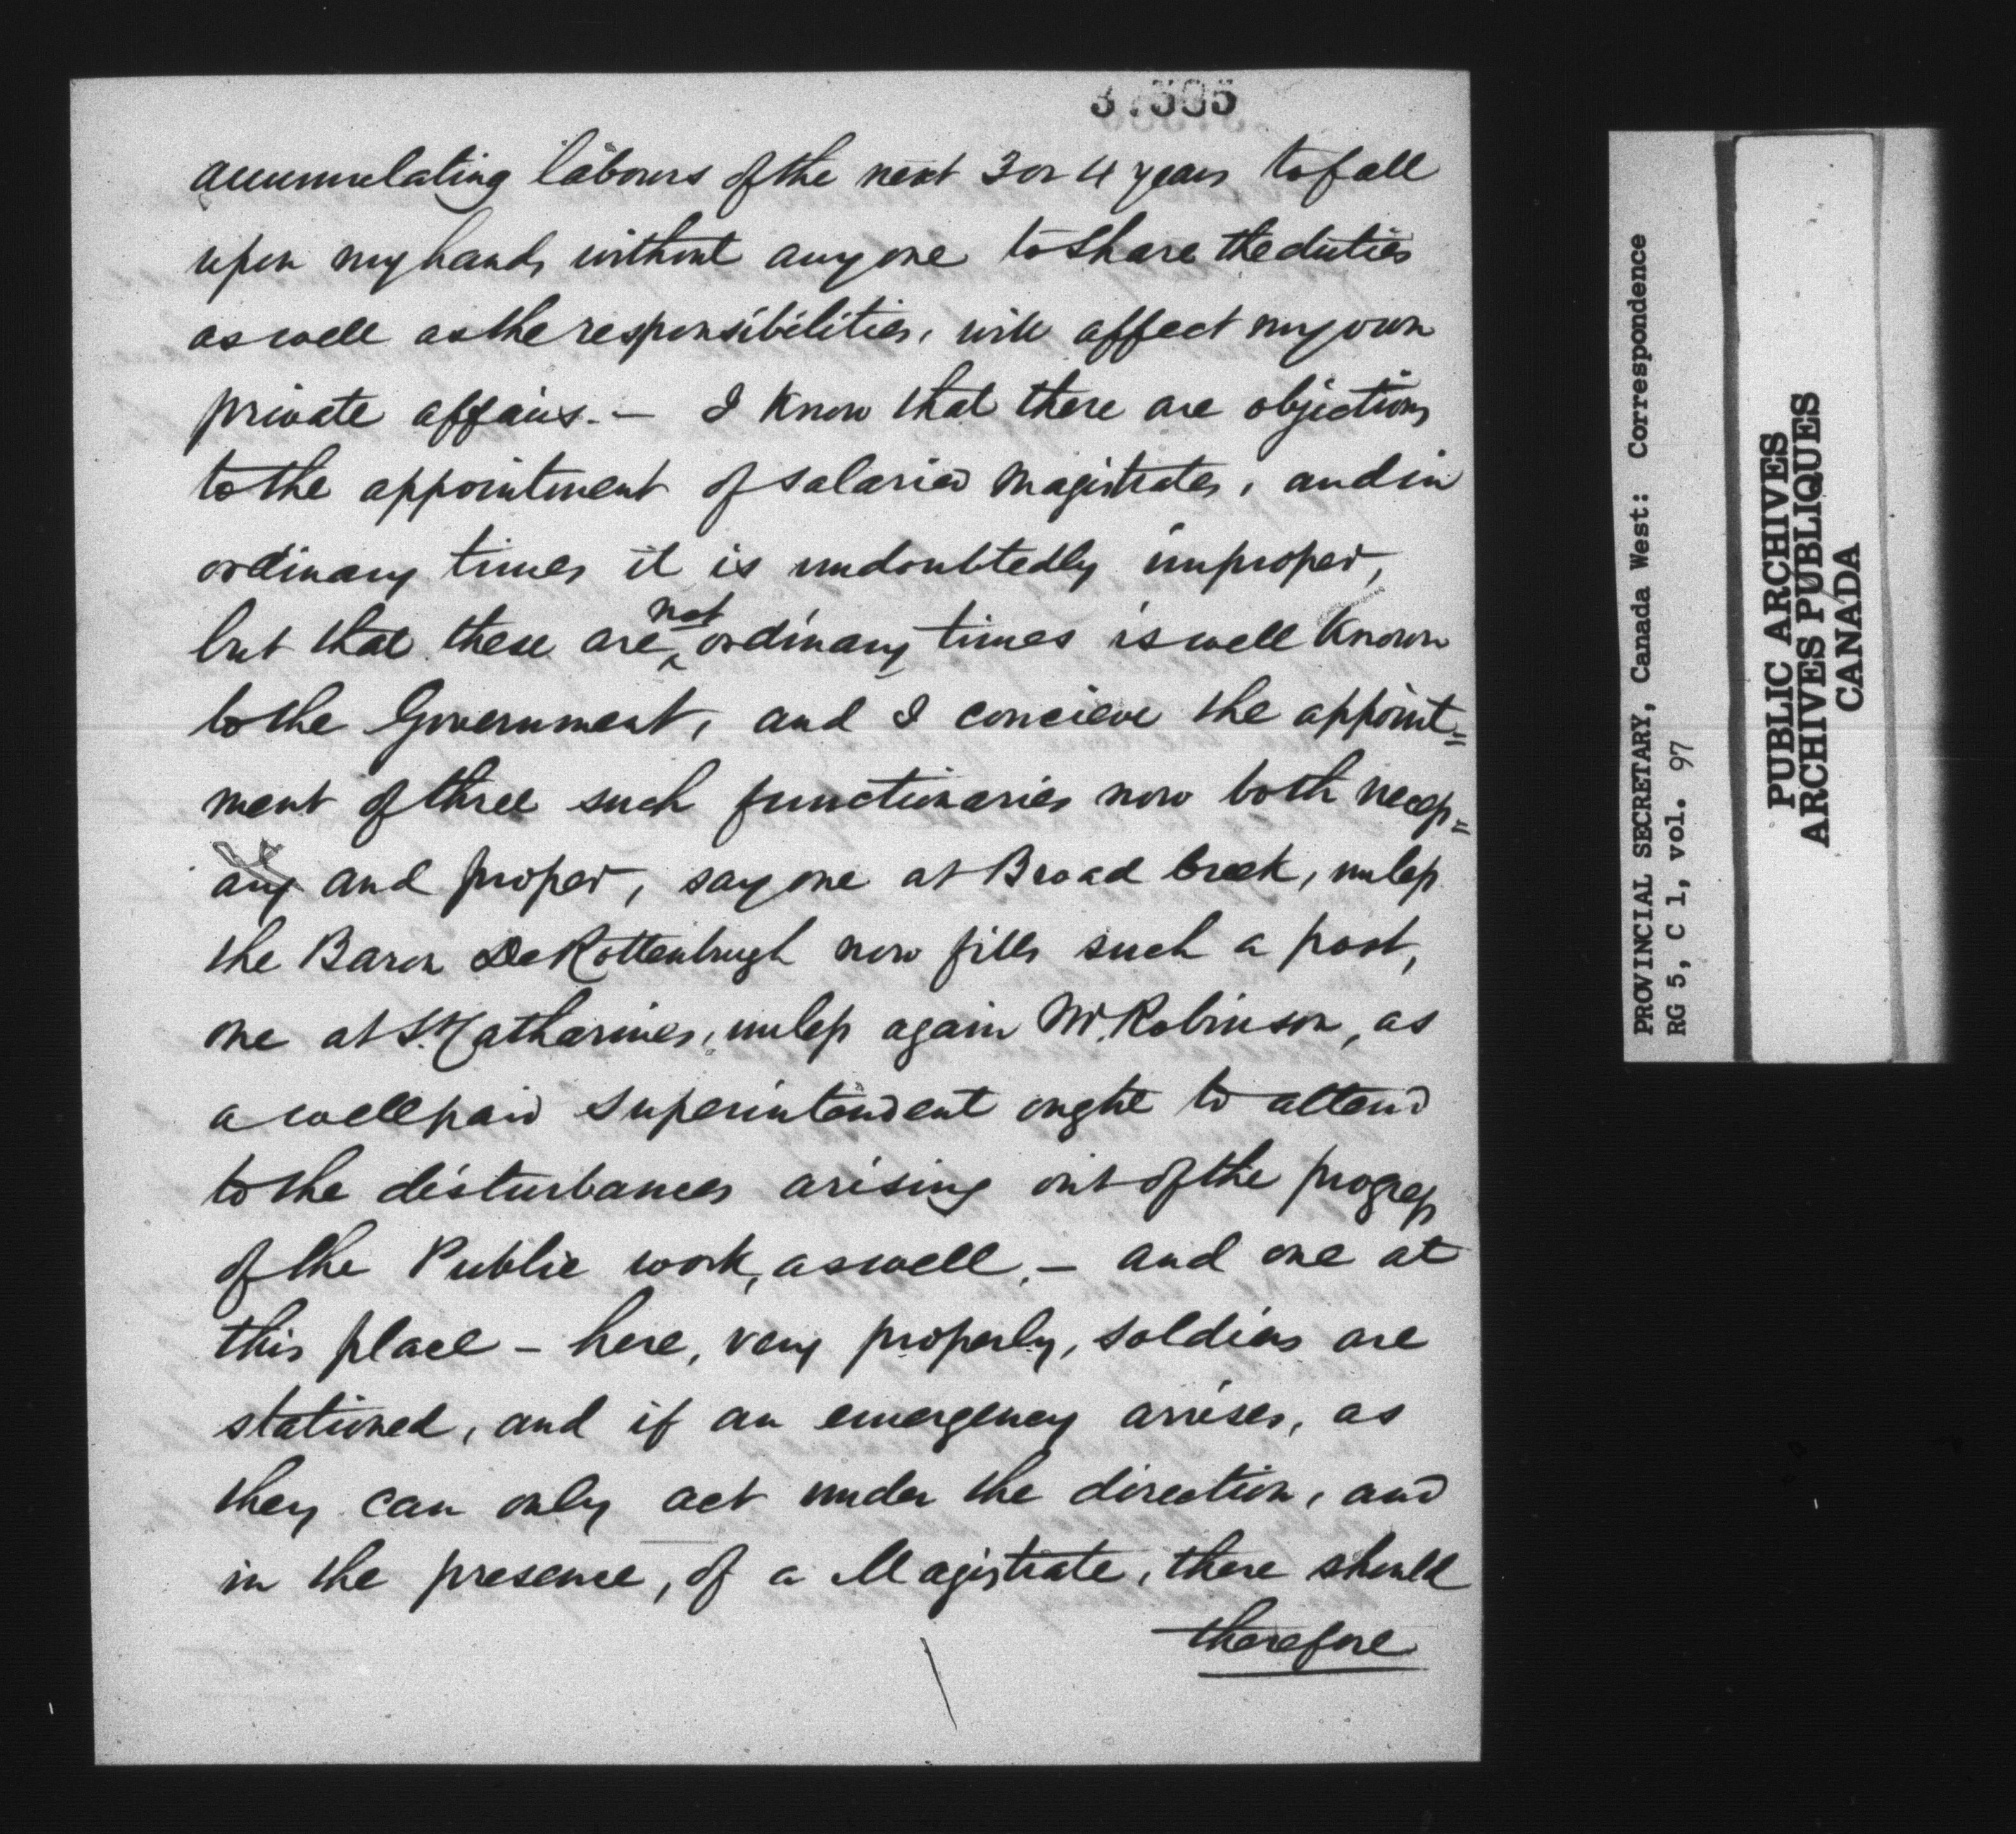 37595
accumulating labours of the next 3 or 4 years to fall
upon my hands without any one to share the duties
as well as the responsibilities, will affect my own
private affairs. — I know that there are objections
to the appointment of salaried magistrates, and in
ordinary times it is undoubtedly improper,
but that these are not ordinary times is well known
to the Government, and I concieve the appoint=
ment of three such functionaries now both necess=
ary and proper, say one at Broad Creek, unless
the Baron De Rottenburgh now fills such a post,
one at St. Catharines, unless again Mr. Robinson, as
a well paid superintendent ought to attend
to the disturbances arising out of the progress
of the Public work, as well, — and one at
this place — here, very properly, soldiers are
stationed, and if an emergency arrises, as
they can only act under the direction, and
in the presence, of a Magistrate, there should
therefore
PROVINCIAL SECRETARY, Canada West: Correspondence
RG 5, C 1, vol. 97
PUBLIC ARCHIVES
ARCHIVES PUBLIQUES
CANADA